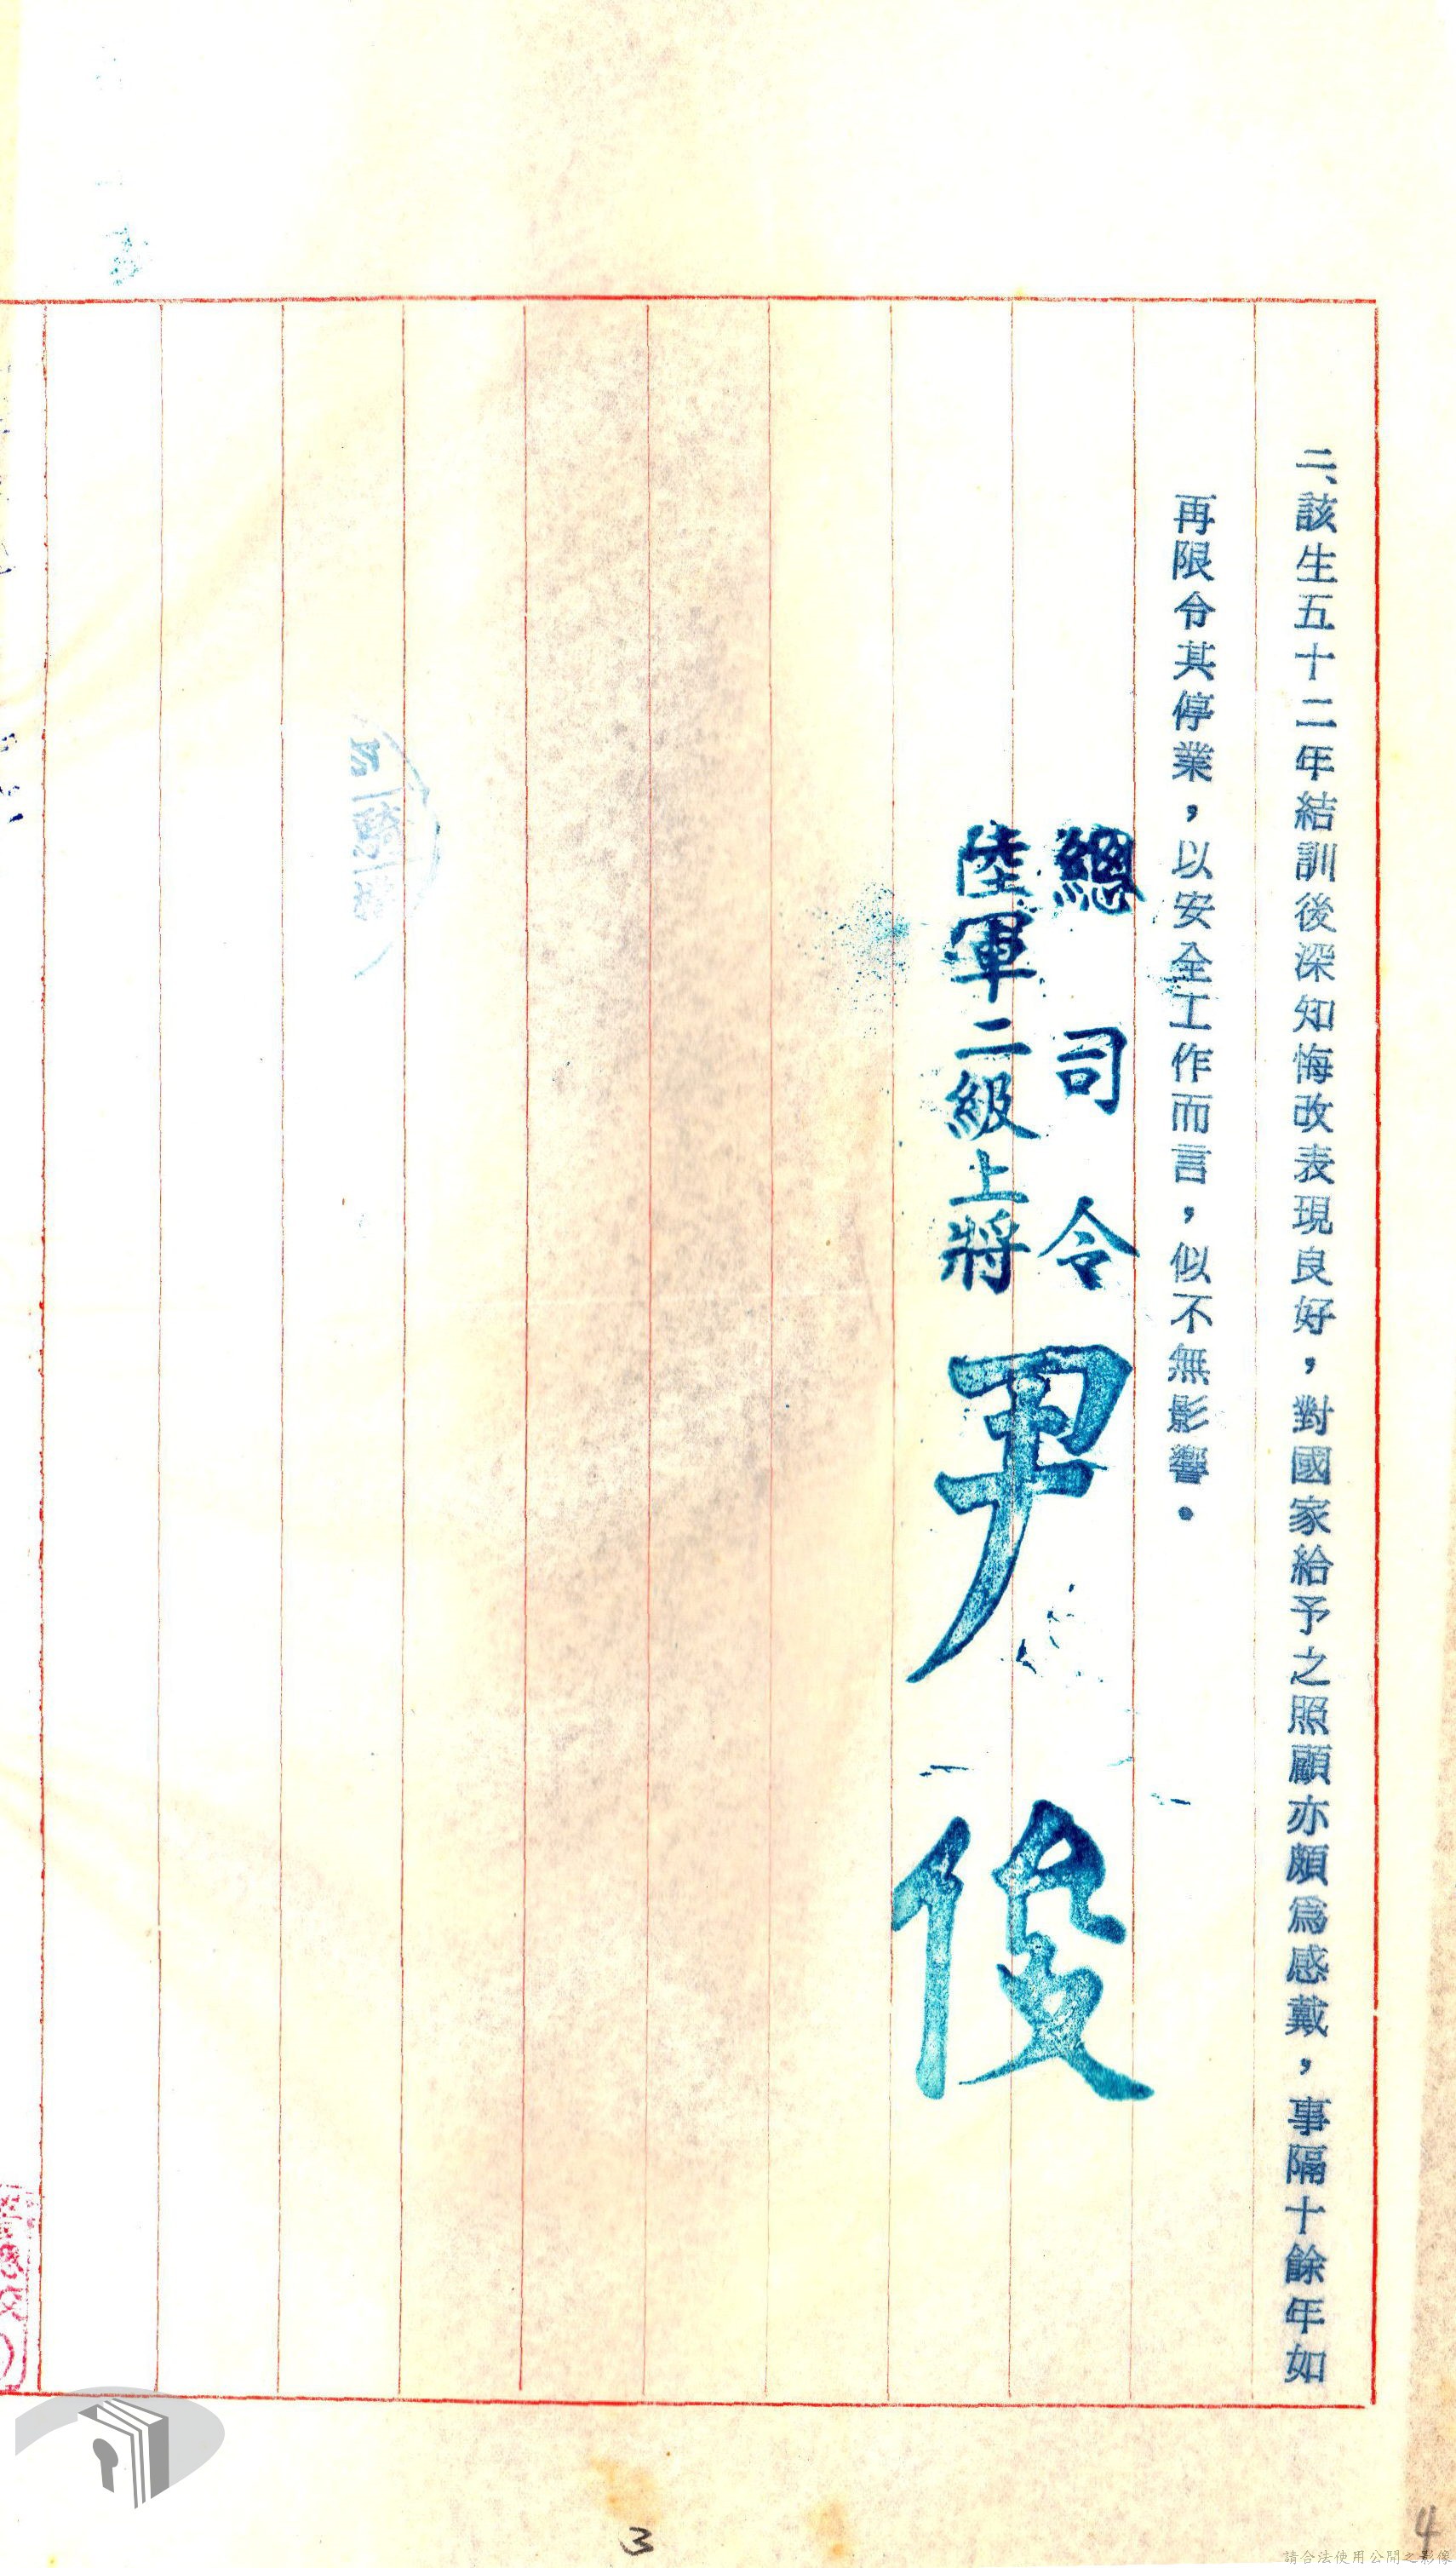 二、該生五十二年結訓後深知悔改表現良好，對國家給予之照顧亦頗為感戴，事隔十餘年如
再限令其停業，以安全工作而言，似不無影響。
總司令
陸軍二級上將
尹俊
3
4
請合法使用公開之影像